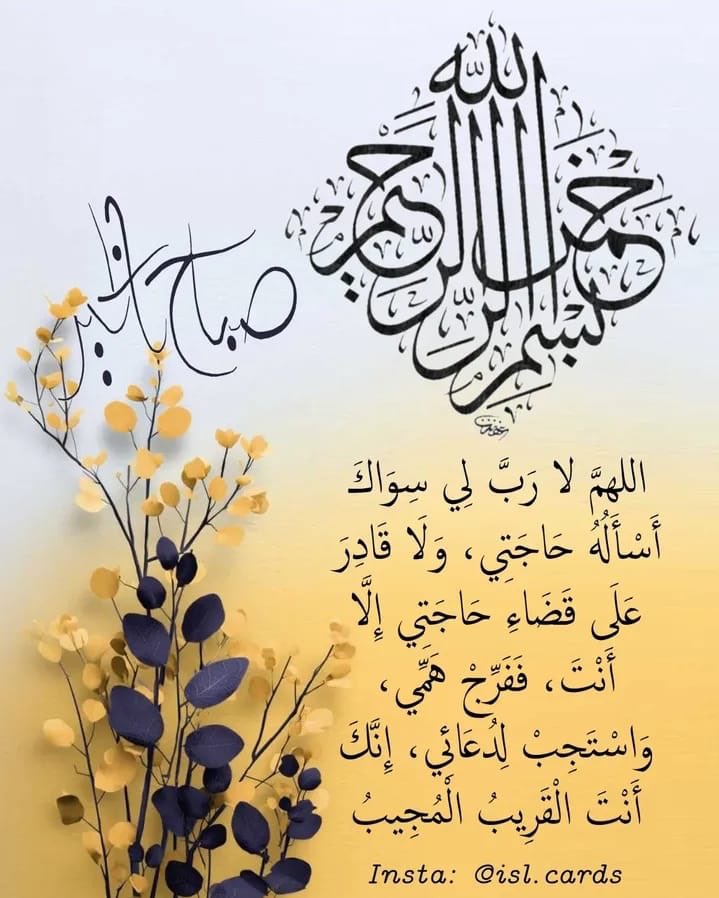 بسم الله الرحمن الرحيم
صباح الخير
اللهمَّ لا رَبَّ لِي سِوَاكَ
أَسْأَلُهُ حَاجَتِي، وَلَا قَادِرَ
عَلَى قَضَاءِ حَاجَتِي إِلَّا
أَنْتَ، فَفَرِّجْ هَمِّي،
وَاسْتَجِبْ لِدُعَائِي، إِنَّكَ
أَنْتَ الْقَرِيبُ الْمُجِيبُ
Insta: @isl.cards